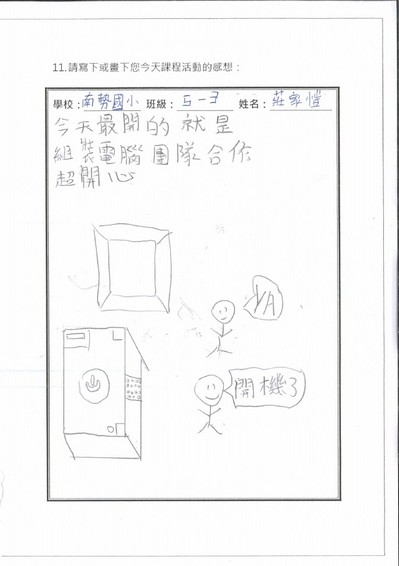 11.請寫下或畫下您今天課程活動的感想：
學校：南勢國小 班級：5-3 姓名：莊家愷
今天最開的就是
組裝電腦團隊合作
超開心
YA
開機了